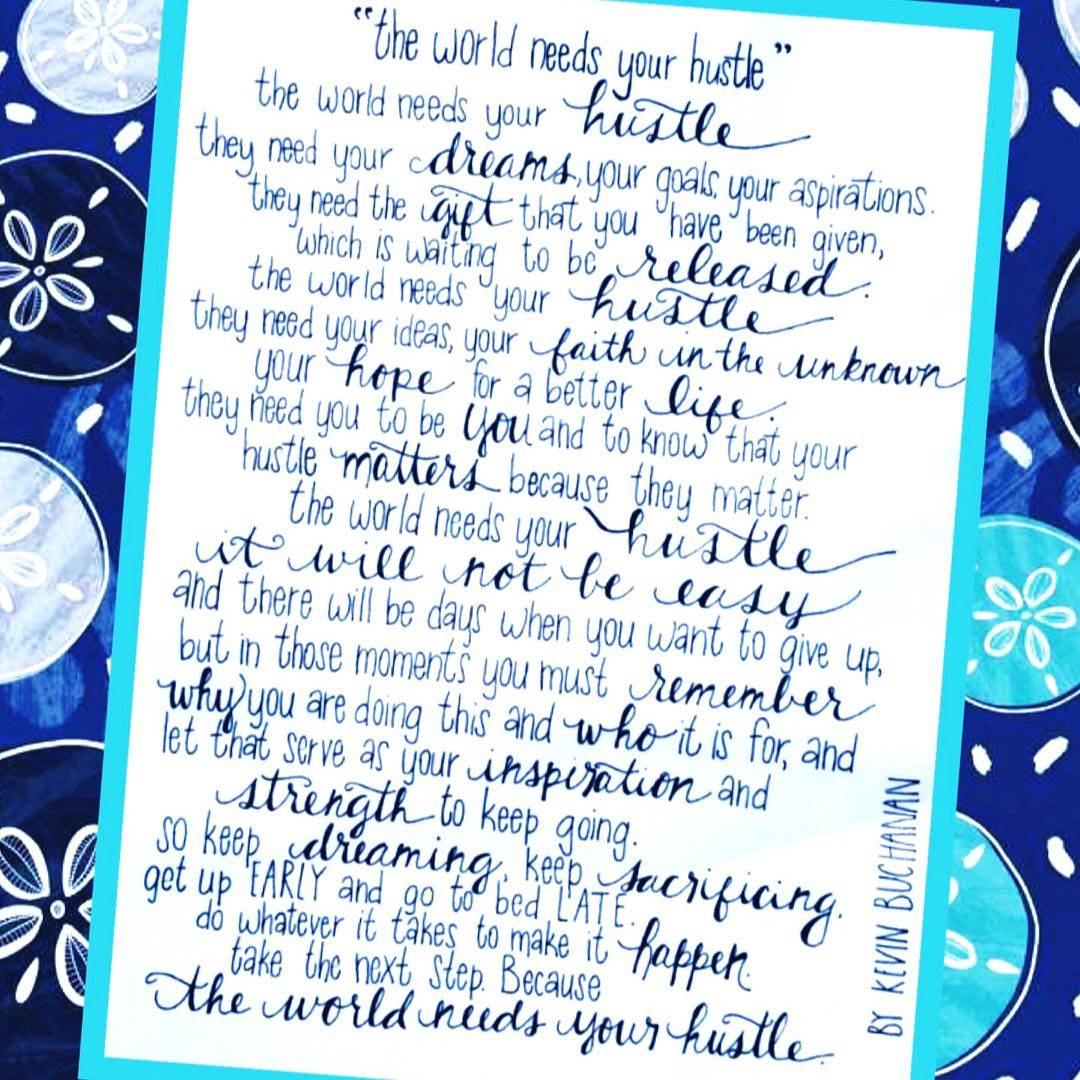 “the world needs your hustle”
the world needs your hustle
they need your dreams, your goals, your aspirations.
they need the gift that you have been given,
which is waiting to be released.
the world needs your hustle
they need your ideas, your faith in the unknown
your hope for a better life.
they need you to be you and to know that your
hustle matters because they matter.
the world needs your hustle
it will not be easy
and there will be days when you want to give up,
but in those moments you must remember
why you are doing this and who it is for, and
let that serve as your inspiration and
strength to keep going.
so keep dreaming, keep sacrificing.
get up EARLY and go to bed LATE.
do whatever it takes to make it happen.
take the next step. Because
the world needs your hustle.
BY KEVIN BUCHANAN